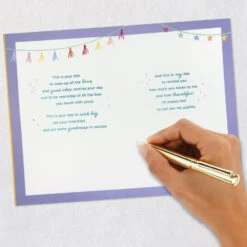 This is your day
to soak up all the love
and good vibes coming your way
and to be reminded of all the fun
you touch with yours.
This is your day to wish big,
set your intentions
and set some goodness in motion.
and this is my day
to remind you
how much you mean to me
and how thankful
I'll always feel
to call you my sister.